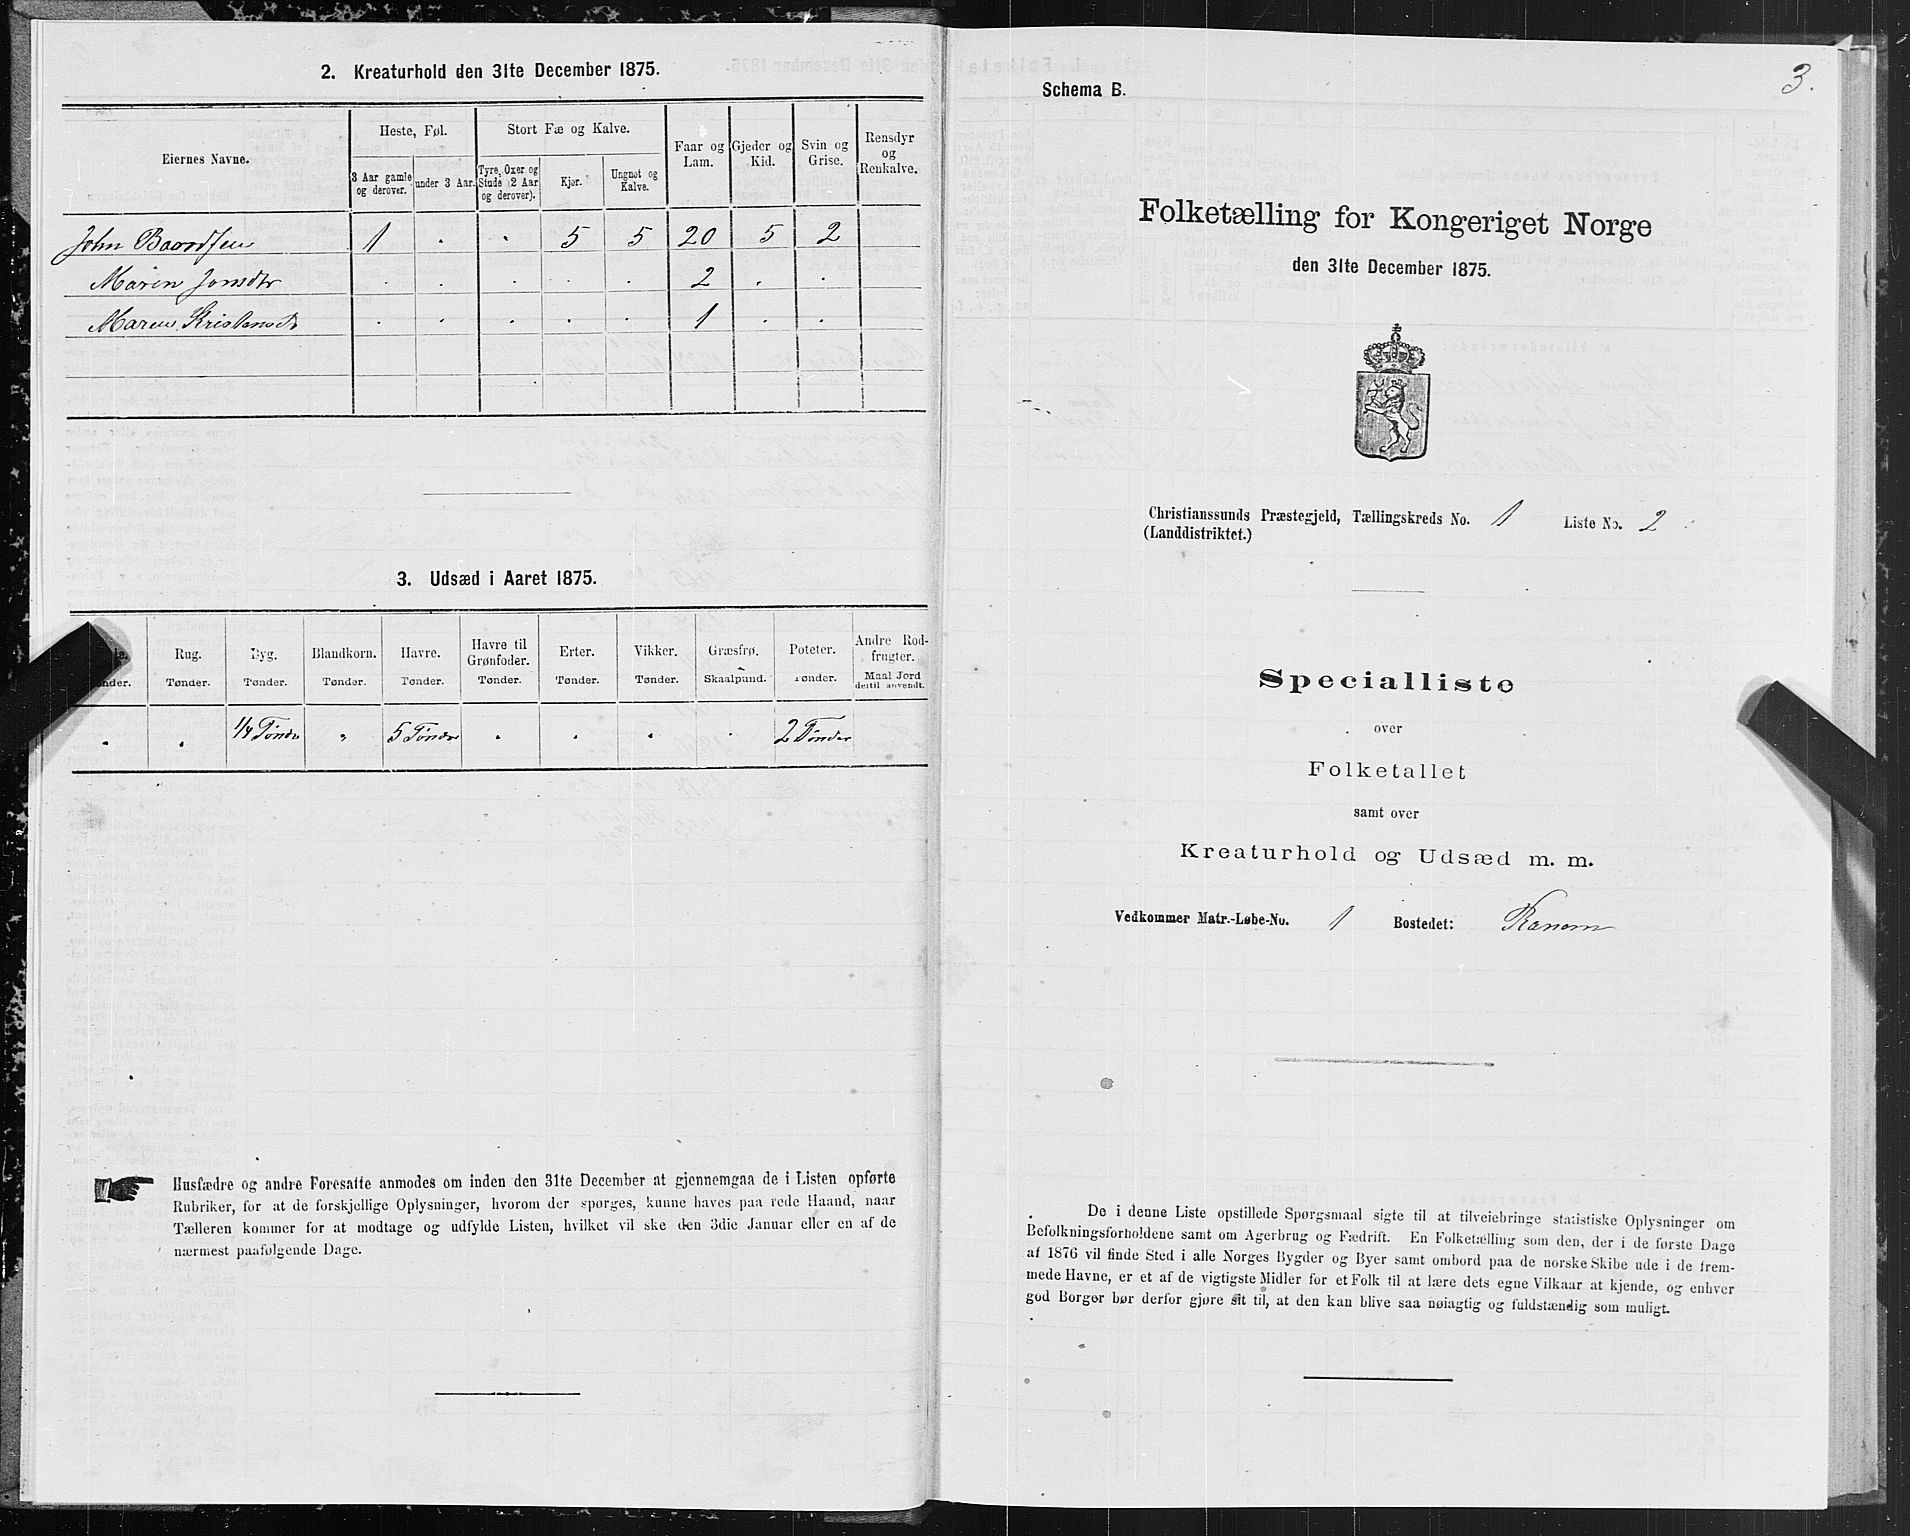 2. Kreaturhold den 31te December 1875.
Eiernes Navne.
Heste, Føl.
Stort Fæ og Kalve.
Faar og Lam.
Gjeder og Kid.
Svin og Grise.
Rensdyr og Renkalve.
3 Aar gamle og derover.
under 3 Aar.
Tyre, Oxer og Stude (2 Aar og derover).
Kjør.
Ungnøt og Kalve.
John Baardsen 1 . . 5 5 20 5 2
Marin Jonsdtr . . . . . 2 . .
Maren Kristensdt . . . . . 1 . .
3. Udsæd i Aaret 1875.
Rug. Tønder.
Byg. Tønder.
Blandkorn. Tønder.
Havre. Tønder.
Havre til Grønfoder. Tønder.
Erter. Tønder.
Vikker. Tønder.
Græsfrø. Skaalpund.
Poteter. Tønder.
Andre Rodfrugter. Maal Jord dertil anvendt.
" " 1/4 Tønde " 5 Tønder " " " . 2 Tønder
Husfædre og andre Foresatte anmodes om inden den 31te December at gjennemgaa de i Listen opførte
Rubriker, for at de forskjellige Oplysninger, hvorom der spørges, kunne haves paa rede Haand, naar
Tælleren kommer for at modtage og udfylde Listen, hvilket vil ske den 3die Januar eller en af de
nærmest paafølgende Dage.
3.
Schema B.
Folketælling for Kongeriget Norge
den 31te December 1875.
Christianssunds Præstegjeld, Tællingskreds No. 1 Liste No. 2
(Landdistriktet.)
Specialliste
over
Folketallet
samt over
Kreaturhold og Udsæd m. m.
Vedkommer Matr.-Løbe-No. 1 Bostedet:
De i denne Liste opstillede Spørgsmaal sigte til at tilveiebringe statistiske Oplysninger om
Befolkningsforholdene samt om Agerbrug og Fædrift. En Folketælling som den, der i de første Dage
af 1876 vil finde Sted i alle Norges Bygder og Byer samt ombord paa de norske Skibe ude i de frem-
mede Havne, er et af de vigtigste Midler for et Folk til at lære dets egne Vilkaar at kjende, og enhver
god Borger bør derfor gjøre sit til, at den kan blive saa nøiagtig og fuldstændig som muligt.